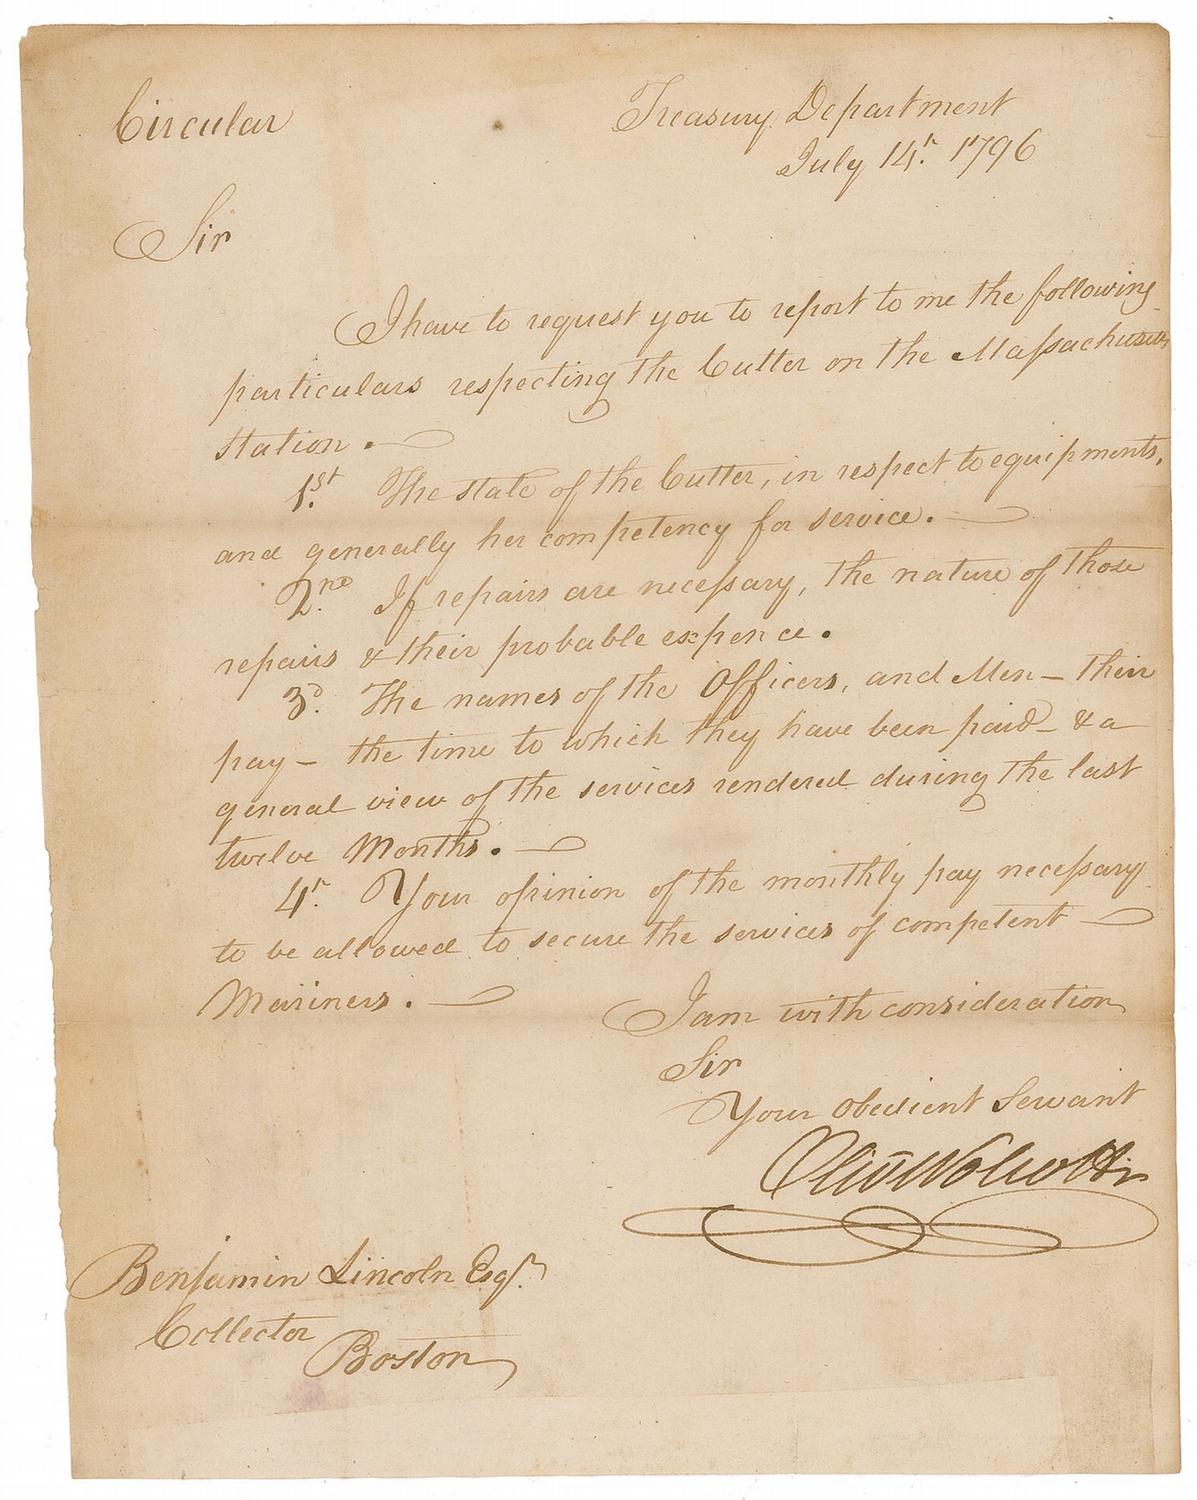 Circular
Treasury Department
July 14th. 1796
Sir
I have to request you to report to me the following
particulars respecting the Cutter on the Massachusetts
Station.
1st. The state of the Cutter, in respect to equipments,
and generally her competency for service.
2nd. If repairs are necessary, the nature of those
repairs & their probable expence.
3d. The names of the Officers, and Men – their
pay – the time to which they have been paid – & a
general view of the services rendered during the last
twelve Months.
4th. Your opinion of the monthly pay necessary
to be allowed to secure the services of competent
Mariners.
I am with consideration
Sir
Your Obedient Servant
Oliv Wolcott Jr
Benjamin Lincoln Esqr.
Collector
Boston